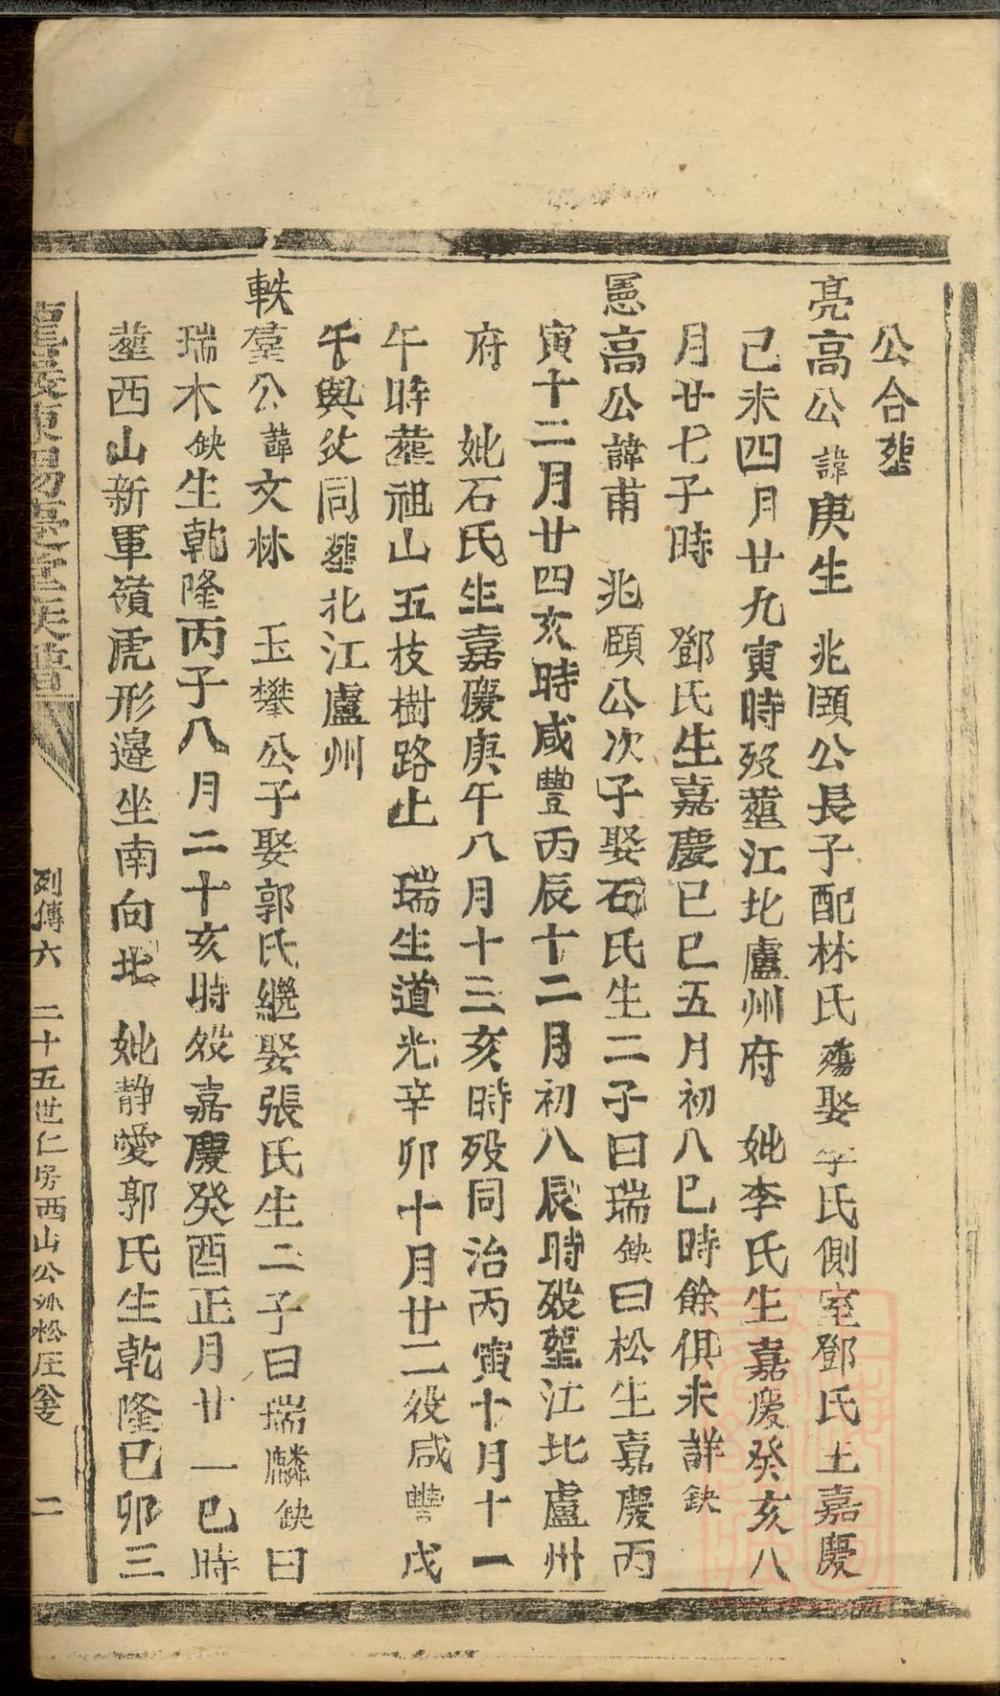 公合塟
亮高公諱庚生　兆頤公長子配林氏殤娶李氏側室鄧氏生嘉慶
己未四月廿九寅時歿塟江北廬州府　妣李氏生嘉慶癸亥八
月廿七子時　鄧氏生嘉慶己巳五月初八巳時餘俱未詳缺
愿高公諱甫　兆頤公次子娶石氏生二子曰瑞缺曰松生嘉慶丙
寅十二月廿四亥時咸豐丙辰十二月初八辰時歿塟江北盧州
府　妣石氏生嘉慶庚午八月十三亥時歿同治丙寅十月十一
午時塟祖山五枝樹路上　瑞生道光辛卯十月廿二歿咸豐戊
午與父同塟北江盧州
軼羣公諱文林　玉攀公子娶郭氏繼娶張氏生二子曰瑞麟缺曰
瑞木缺生乾隆丙子八月二十亥時歿嘉慶癸酉正月廿一巳時
塟西山新軍嶺虎形邉坐南向北　妣静愛郭氏生乾隆己卯三
東陽
族譜
列傳六　二十五世仁房西山公派松庄 二